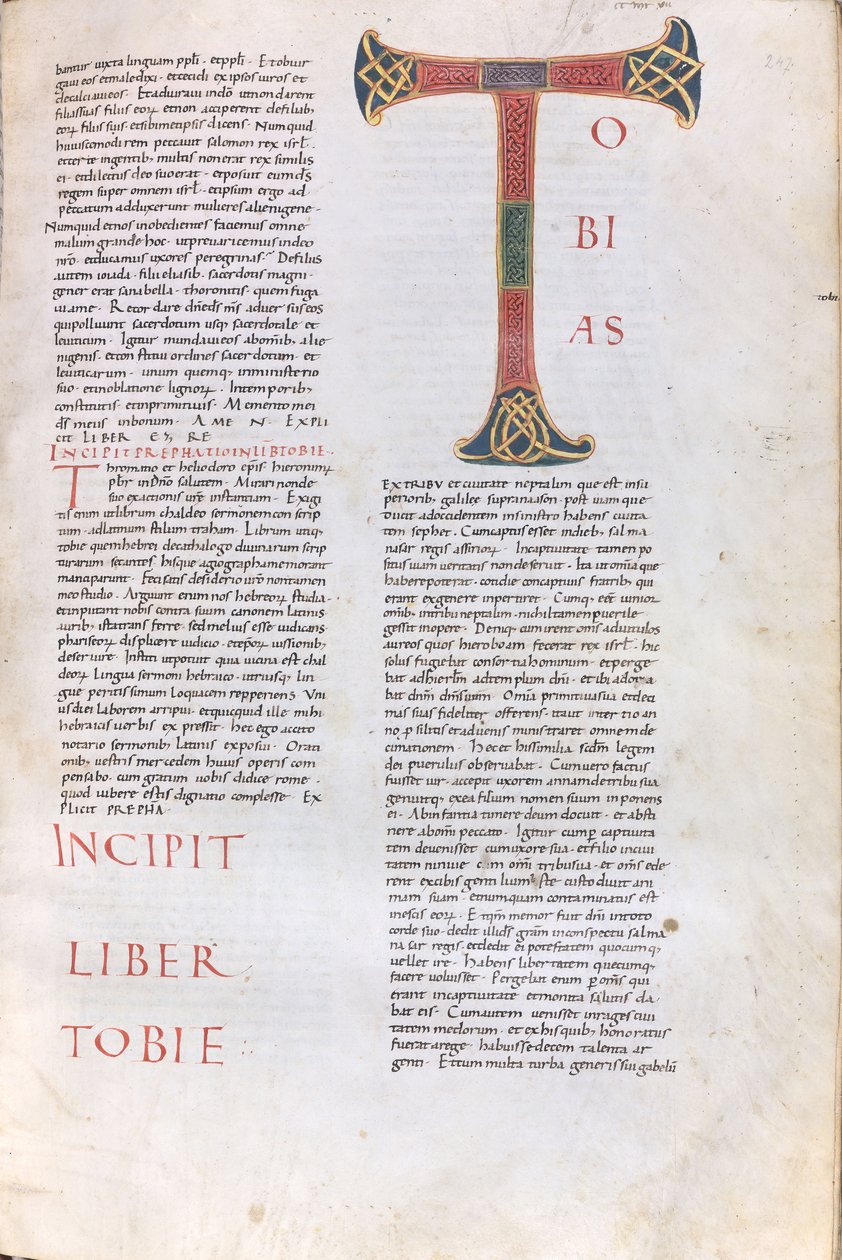 bantur iuxta linguam ppłi · et ppłi · Et obiur
gavi eos et maledixi · et cecidi ex ipsos viros et
decalciavi eos · Et adiuravi in dõ ut non darent
filias suas filiis eorꝝ et non acciperent de filiab;
eorꝝ filiis suis · et sibimetipsis dicens · Numquid
huiuscemodi rem peccavit salomon rex isrł ·
et certe in gentib; multis non erat rex similis
ei · et dilectus deo suo erat · et posuit eum ds̄
regem super omnem isrł · et ipsum ergo ad
peccatum adduxerunt mulieres alienigene ·
Numquid et nos inobedientes faciemus omne
malum grande hoc · ut prevaricemus in deo
nr̄o · et ducamus uxores peregrinas · De filiis
autem ioiada · filii eliasib · sacerdotis magni ·
gener erat sanabella · thoronitis · quem fuga
vi a me · Recordare dnē ds̄ ms̄ adversus eos
qui polluunt sacerdotium usq; sacerdotale et
leviticum · Igitur mundavi eos ab omib; alie
nigenis · et constitui ordines sacerdotum · et
leviticarum · unum quemq; in ministerio
suo · et in oblatione lignorꝝ · In temporib;
constitutis · et in primitivis · Memento mei
ds̄ meus in bonum · AMEN · EXPLI
cit LIBER EZRE
INCIPIT PREPHATIO IN LIB TOBIE ·
Thromatio et heliodoro ep̄is hieronimꝝ
pb̄r in dn̄o salutem · Mirari non de
sino exactionis vr̄e instantiam · Exigi
tis enim ut librum chaldeo sermone con scrip
tum · ad latinum stilum traham · Librum utiq;
tobie quem hebrei de cathalogo divinarum scrip
turarum secantes · hisque agiographa memorant
manciparunt · Feci satis desiderio vr̄o non tamen
meo studio · Arguunt enim nos hebreorꝝ studia ·
et inputant nobis contra suum canonem latinis
aurib; ista transferre · sed melius esse iudicans
phariseorꝝ displicere iudicio · et ep̄orꝝ iussionib;
deservire · Institi ut potui et quia vicina est chal
deorꝝ lingua sermoni hebraico · utriusq; lin
gue peritissimum loquacem repperiens · Uni
us diei laborem arripui · et quicquid ille mihi
hebraicis verbis expressit · hec ego accito
notario sermonib; latinis exposui · Orati
onib; vestris mercedem huius operis com
pensabo · cum gratum vobis didicero me ·
quod iubere estis dignati complesse · EX
PLICIT PREPHA ·
INCIPIT
LIBER
TOBIE
T
O
BI
AS
EX TRIBU et civitate neptalim que est in su
periorib; galilee supra naason · post viam que
ducit ad occidentem in sinistro habens civita
tem sephet · Cum captus esset in dieb; salma
nasar regis assiriorꝝ · In captivitate tamen po
situs viam veritatis non deseruit · Ita ut omīa que
habere poterat · cotidie concaptivis fratrib; qui
erant ex genere inpertiret · Cumq; eēt iunior
omīb; in tribu neptalim · nichil tamen puerile
gessit in opere · Deniq; cum irent om̄s ad vitulos
aureos quos hieroboam fecerat rex isrł · hic
solus fugiebat consortia hominum · et perge
bat ad hierłm ad templum dn̄i · et ibi adora
bat dnm̄ dm̄ suum · Omīa primitiva sua et deci
mas suas fideliter offerens · ita ut in tertio an
no prosilitis et advenis ministraret omnem de
cimationem · Hec et his similia scdm̄ legem
dei puerulus observabat · Cum vero factus
fuisset vir · accepit uxorem annam de tribu sua
genuitq; ex ea filium nomen suum inponens
ei · Ab infantia timere deum docuit · et absti
nere ab omī peccato · Igitur cum per captivita
tem devenisset cum uxore sua · et filio in civi
tatem ninive cum omī tribu sua · et om̄s ede
rent ex cibis gentilium · iste custodivit ani
mam suam · et numquam contaminatus est
in escis eorꝝ · Et qm̄ memor fuit dn̄i in toto
corde suo · dedit illi ds̄ gram̄ in conspectu salma
nasar regis · et dedit ei potestatem quocumq;
vellet ire · Habens libertatem quecumq;
facere voluisset · Pergebat enim per om̄s qui
erant in captivitate et monita salutis da
bat eis · Cum autem venisset in rages civi
tatem medorum · et ex his quib; honoratus
fuerat a rege · habuisse decem talenta ar
genti · Et cum multa turba generis sui gabelū
tobi
247